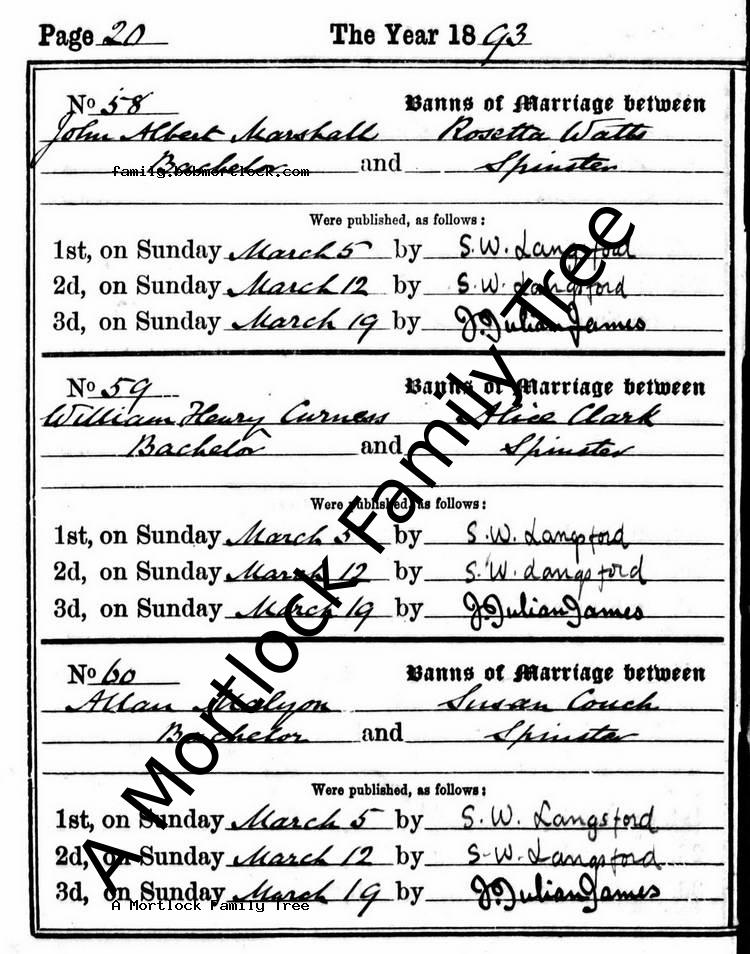 Page 20 The Year 1893
No 58 Banns of Marriage between
John Albert Marshall Rosetta Watts
Bachelor and Spinster
family.bobmortlock.com
Were published, as follows:
1st, on Sunday March 5 by S.W. Langsford
2d, on Sunday March 12 by S.W. Langsford
3d, on Sunday March 19 by J. Julian James
No 59 Banns of Marriage between
William Henry Curness Alice Clark
Bachelor and Spinster
Were published, as follows:
1st, on Sunday March 5 by S.W. Langsford
2d, on Sunday March 12 by S.W. Langsford
3d, on Sunday March 19 by J. Julian James
No 60 Banns of Marriage between
Allan Malyon Susan Couch
Bachelor and Spinster
Were published, as follows:
1st, on Sunday March 5 by S.W. Langsford
2d, on Sunday March 12 by S.W. Langsford
3d, on Sunday March 19 by J. Julian James
A Mortlock Family Tree
A Mortlock Family Tree